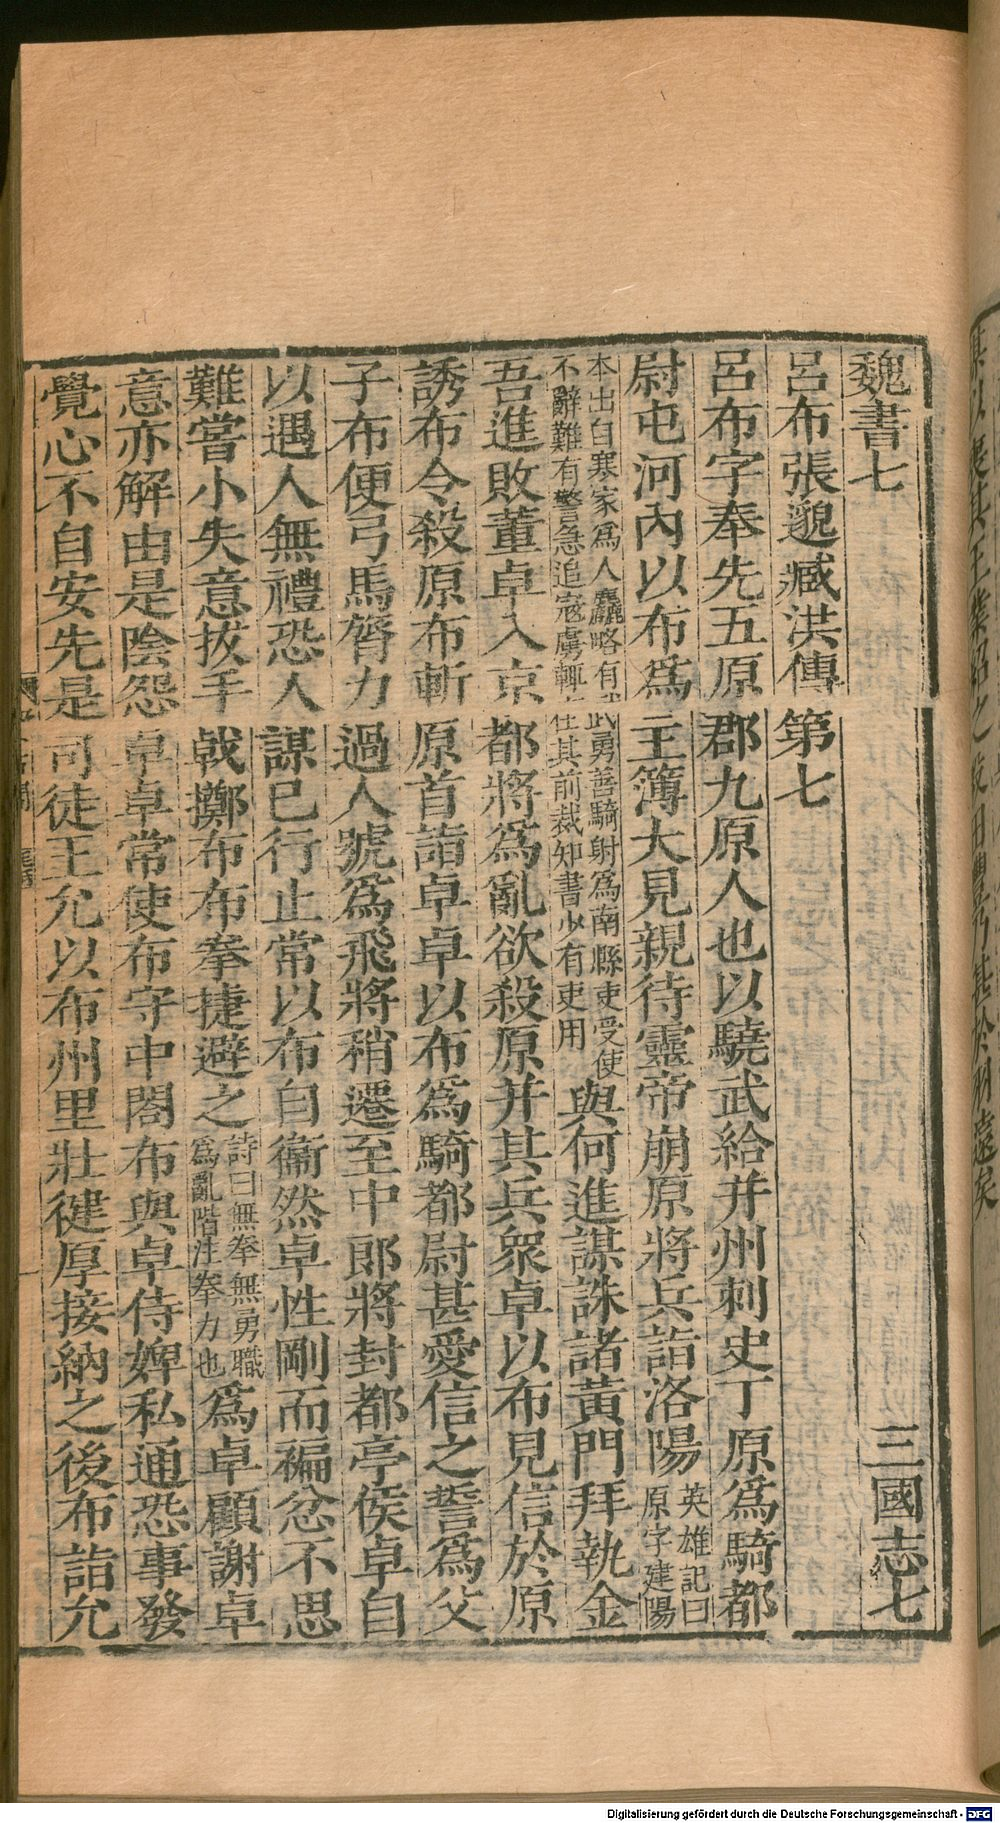 魏書七 三國志七
呂布張邈臧洪傳第七
呂布字奉先五原郡九原人也以驍武給并州刺史丁原爲騎都
尉屯河內以布爲主簿大見親待靈帝崩原將兵詣洛陽
英雄記曰
原字建陽
本出自寒家爲人麤略有武勇善騎射爲南縣吏受使
不辭難有警急追寇虜輒在其前裁知書少有吏用
與何進謀誅諸黃門拜執金
吾進敗董卓入京都將爲亂欲殺原并其兵衆卓以布見信於原
誘布令殺原布斬原首詣卓卓以布爲騎都尉甚愛信之誓爲父
子布便弓馬膂力過人號爲飛將稍遷至中郎將封都亭侯卓自
以遇人無禮恐人謀已行止常以布自衞然卓性剛而褊忿不思
難嘗小失意拔手戟擲布布拳捷避之
詩曰無拳無勇職
爲亂階注拳力也
爲卓顧謝卓
意亦解由是陰怨卓卓常使布守中閤布與卓侍婢私通恐事發
覺心不自安先是司徒王允以布州里壯健厚接納之後布詣允
Digitalisierung gefördert durch die Deutsche Forschungsgemeinschaft - DFG